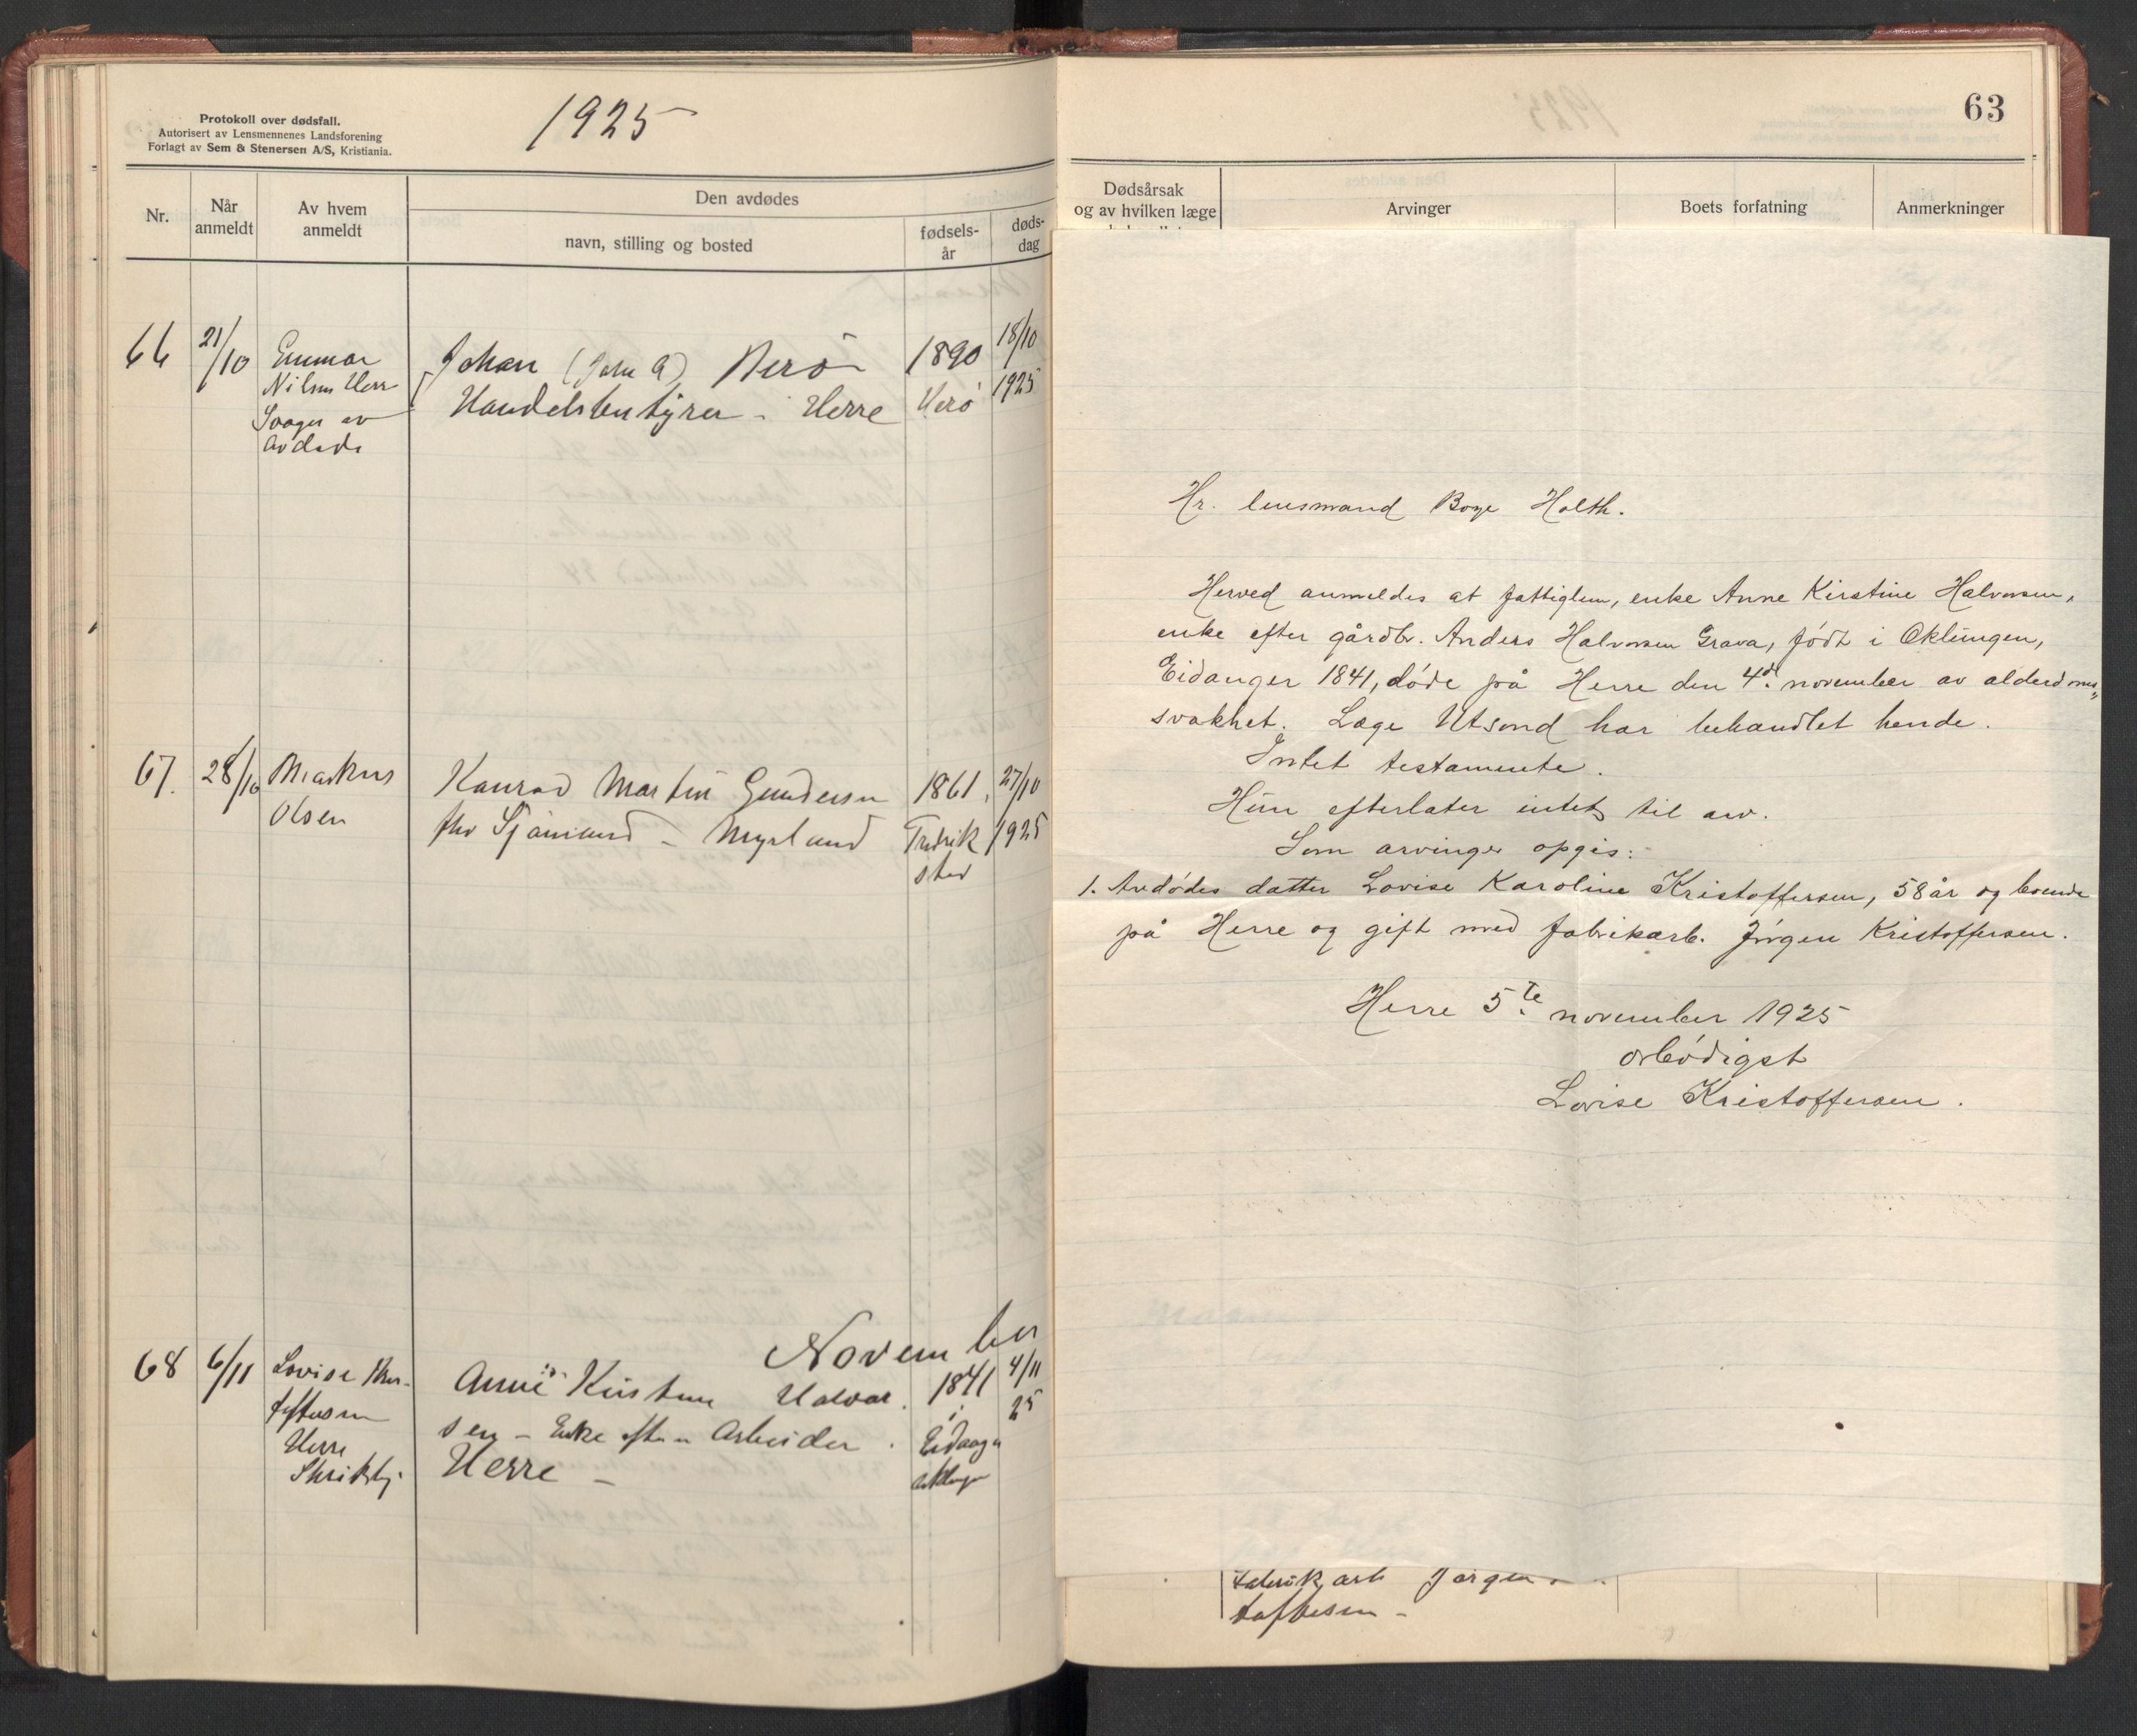 Protokoll over dødsfall.
Autorisert av Lensmennenes Landsforening
Forlagt av Sem & Stenersen A/S, Kristiania.
1925
Nr.
Når
anmeldt
Av hvem
anmeldt
Den avdødes
navn, stilling og bosted
fødsels-
år
døds-
dag
66
21/10
Emmar
Nilsen Herr
Svoger av
avdøde
Johan (John A) Herö
Handelsbestyrer - Herre
1890
Herö
18/10
1925
67.
28/10
Markus
Olsen
Konrad Martin Gundersen
fhv Sjömand - Myrland
1861.
Fredrik
stad
27/10
1925
November
68
6/11
Lovise Kris-
toffersen
Herre
Skriftlig
Anne Kirstine Halvor.
sen - Enke efter Arbeider.
Herre -
1841
i
Eidanger
Oklungen
4/11
25
63
Dødsårsak
og av hvilken læge
Arvinger
Boets forfatning
Anmerkninger
Hr. lensmand Boye Holth.
Herved anmeldes at fattiglem, enke Anne Kirstine Halvorsen,
enke efter gårdbr. Anders Halvorsen Grava, født i Oklungen,
Eidanger 1841, døde på Herre den 4de november av alderdoms„
svakhet. Læge Utsond har behandlet hende.
Intet testamente.
Hun efterlater intet til arv.
Som arvinger opgis:
1. Avdødes datter Lovise Karoline Kristoffersen, 58 år og boende
på Herre og gift med fabrikarb. Jørgen Kristoffersen.
Herre 5te november 1925
ærbødigst
Lovise Kristoffersen.
fabrikarb Jørgen
toffersen -